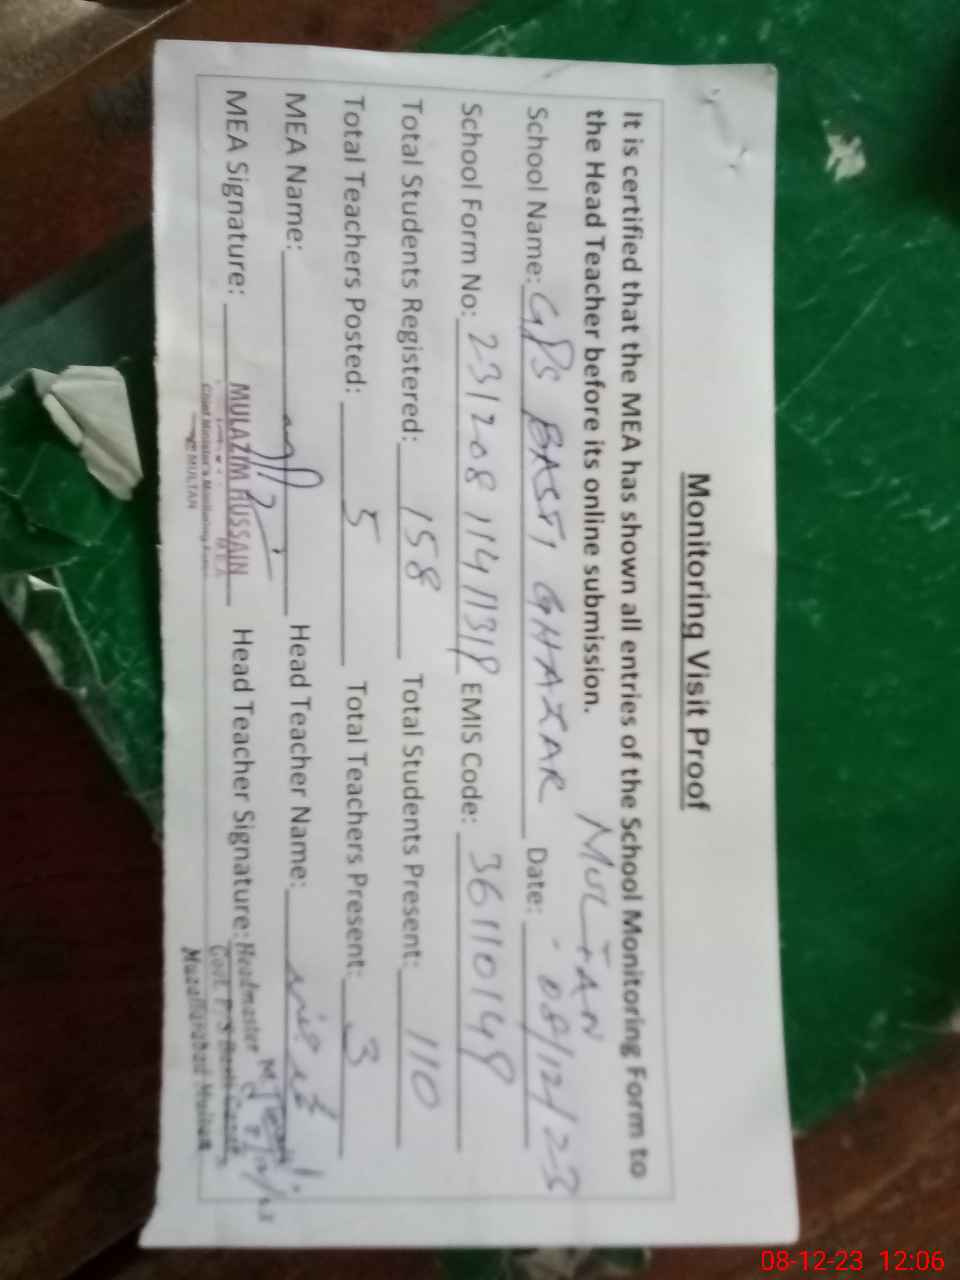 Monitoring Visit Proof
It is certified that the MEA has shown all entries of the School Monitoring Form to
the Head Teacher before its online submission.
MULTAN
School Name: GPS BASTI GHAZAR Date: 08/12/23
School Form No: EMIS Code: 36110149
Total Students Registered: 158 Total Students Present: 110
Total Teachers Posted: 5 Total Teachers Present: 3
MEA Name: Head Teacher Name:
MEA Signature: MULAZIM HUSSAIN Head Teacher Signature: Headmaster
Chief Minister's Monitoring Force
MULTAN
Govt. P/S
Muzaffarabad Multan
08-12-23 12:06